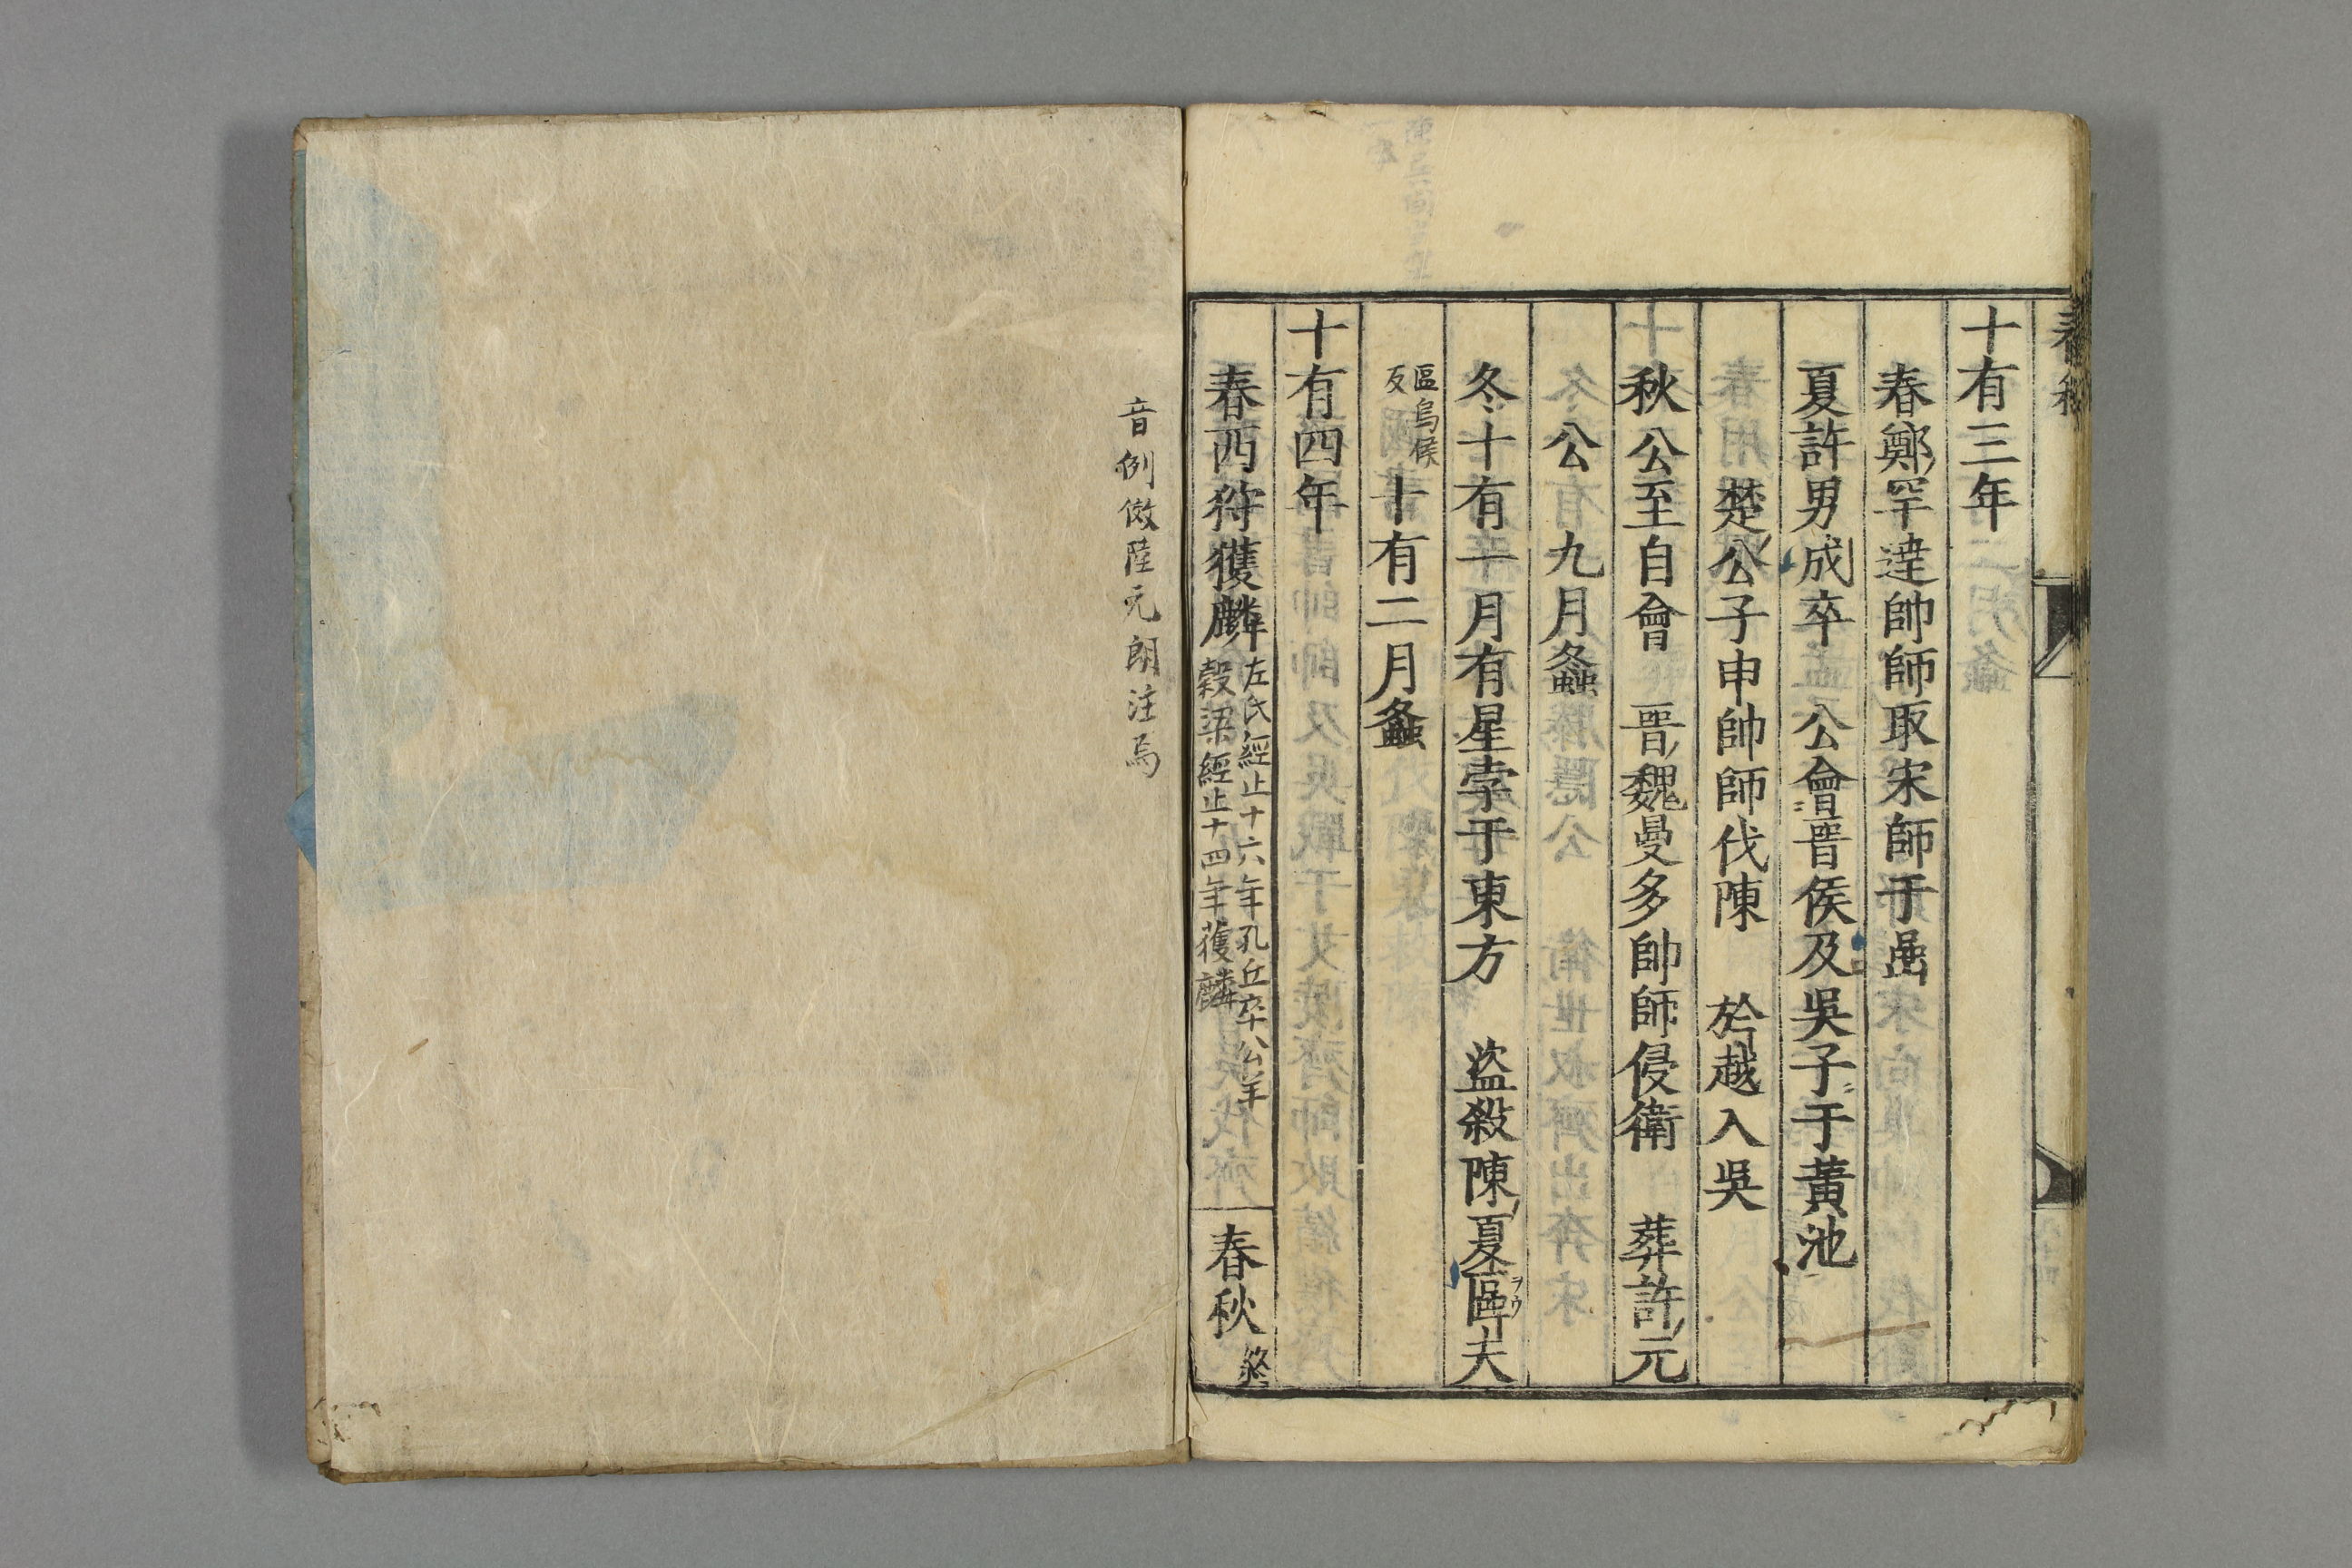 春秋
十有三年
春鄭罕達帥師取宋師于嵒
夏許男成卒　公會晉侯及吳子于黃池
楚公子申帥師伐陳　於越入吳
秋公至自會　晉魏曼多帥師侵衛　葬許元
公　九月螽
冬十有一月有星孛于東方　盜殺陳夏區夫
ヲウ
區烏侯
反
十有二月螽
十有四年
春西狩獲麟
左氏經止十六年孔丘卒公羊
穀梁經止十四年獲麟
春秋終
音例倣陸元朗注焉